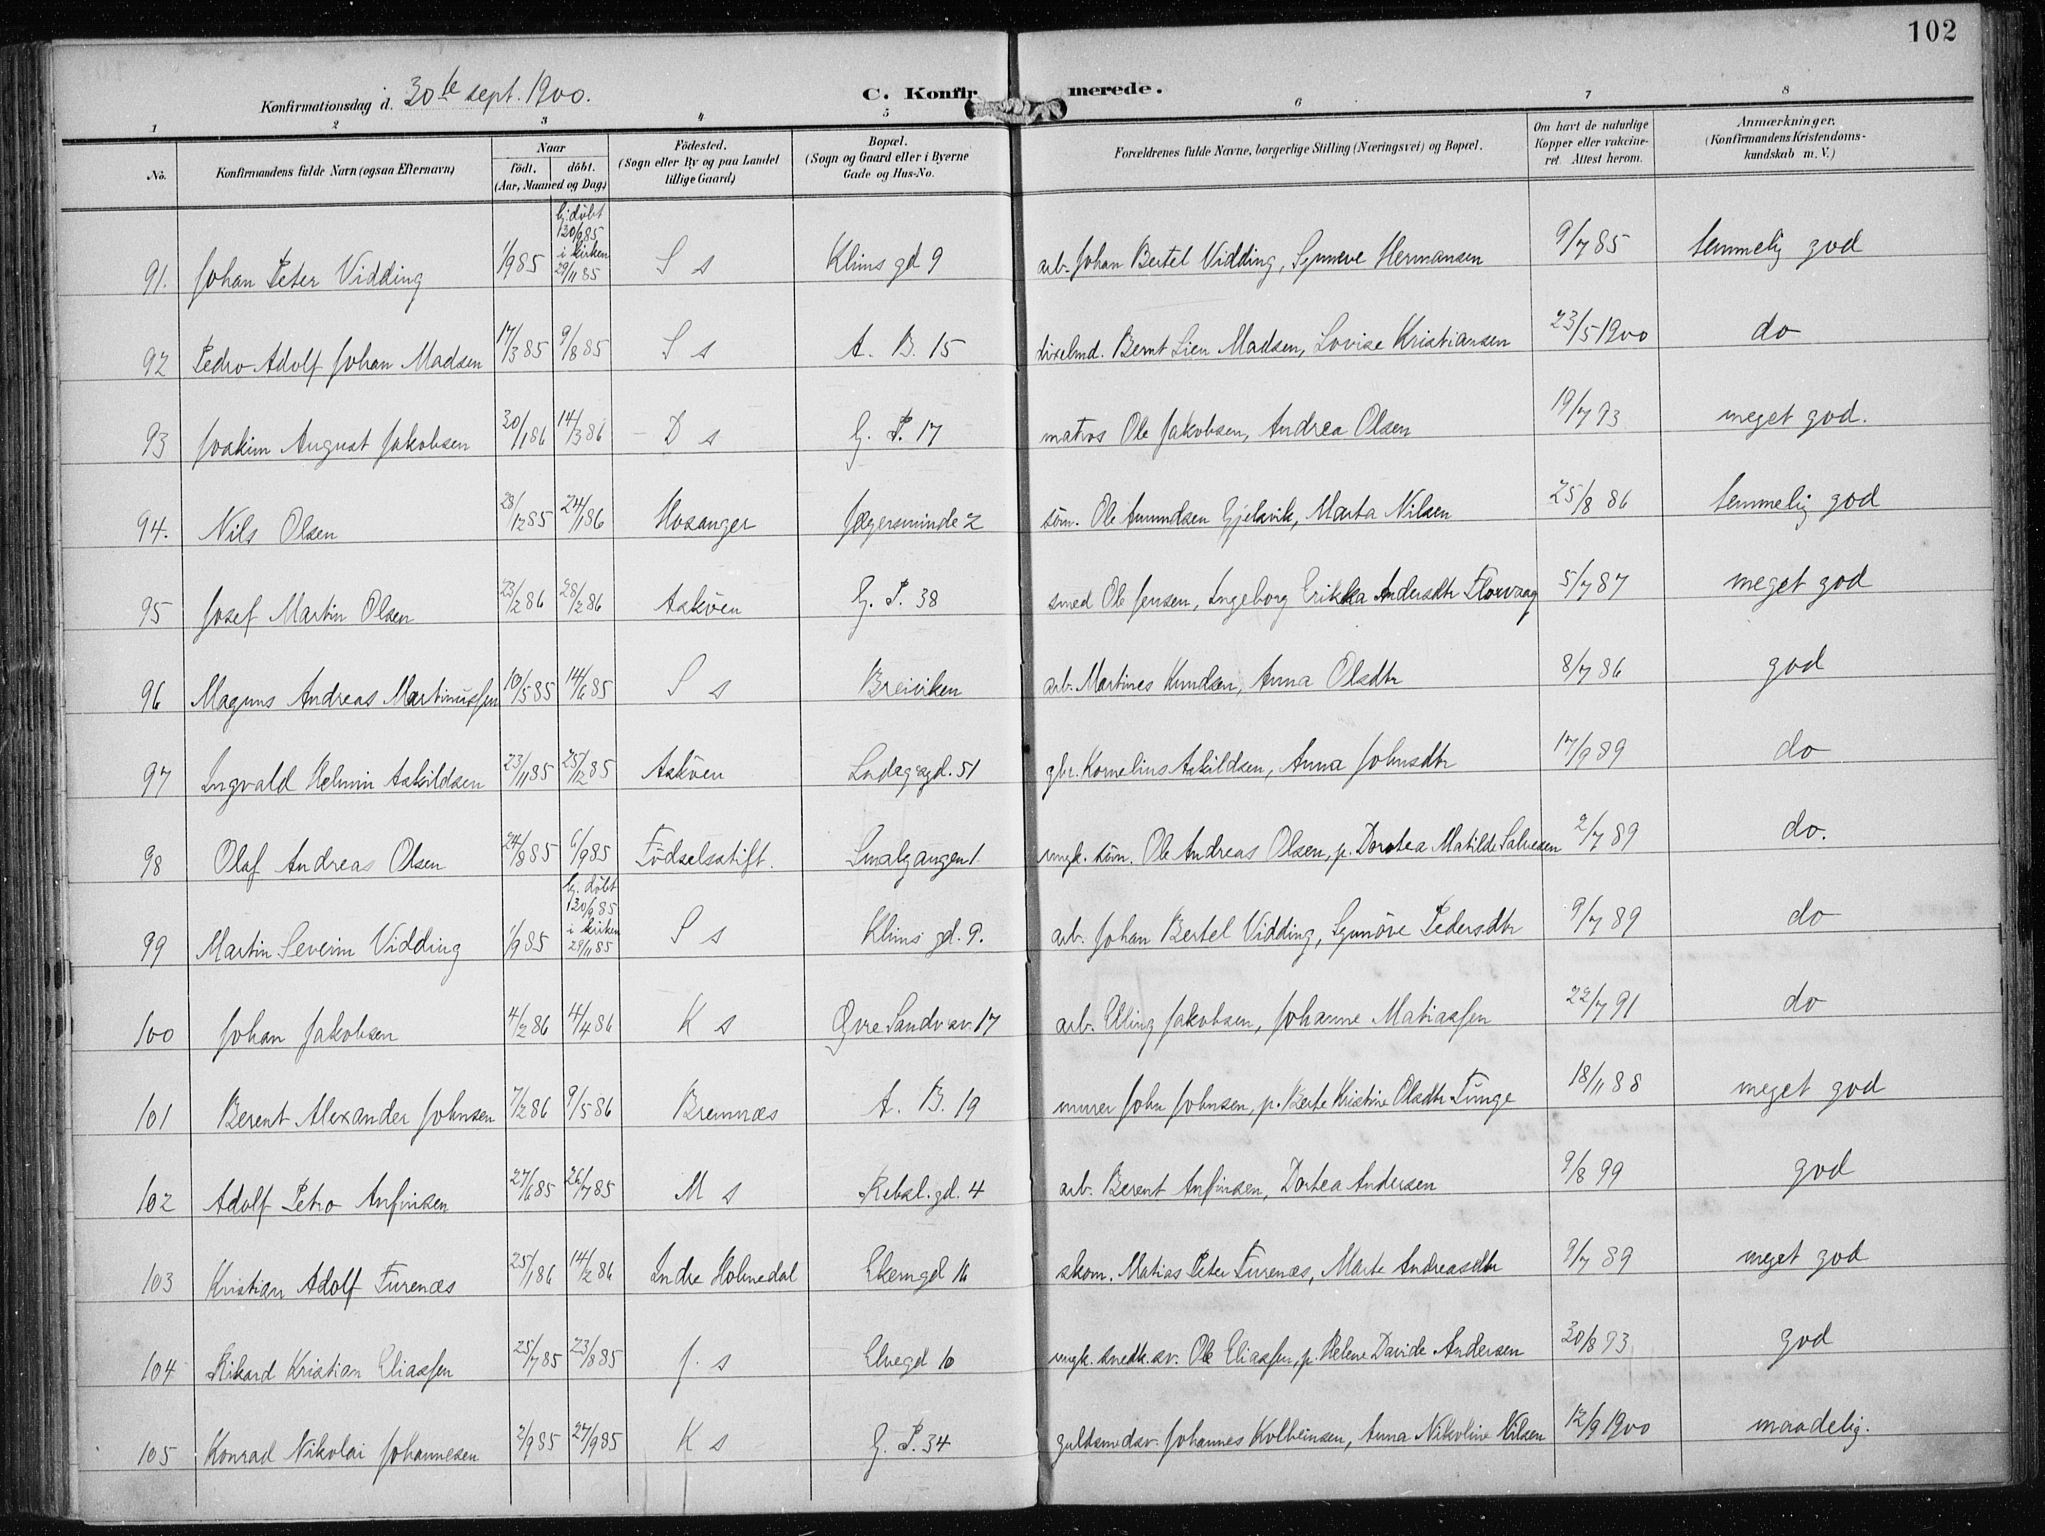 102
Konfirmationsdag d. 30te sept. 1900.
C. Konfirmerede.
1 2 3 4 5 6 7 8
No. Konfirmandens fulde Navn (ogsaa Efternavn) Naar født. døbt. (Aar, Maaned og Dag) Fødested. (Sogn eller By og paa Landet tillige Gaard) Bopæl. (Sogn og Gaard eller i Byerne Gade og Hus-No. Forældrenes fulde Navne, borgerlige Stilling (Næringsvei) og Bopæl. Om havt de naturlige Kopper eller vakcineret. Attest herom. Anmærkninger. (Konfirmandens Kristendomskundskab m. V.)
91. Johan Peter Vidding 1/9 85 hj. døbt 20/9 85 i kirken 29/11 85 S s Klins gd 9 arb. Johan Bertel Vidding, Synneve Hermansen 9/7 85 temmelig god
92 Pedro Adolf Johan Madsen 17/3 85 9/8 85 S s A. B. 15 Bernt Lien Madsen, Lovise Kristiansen 23/5 1900 do
93 Joakim August Jakobsen 30/1 86 14/3 86 D s G. P. 17 matros Ole Jakobsen, Andrea Olsen 19/7 93 meget god.
94. Nils Olsen 28/12 85 24/1 86 Hosanger Jægersminde 2 søm. Ole Amundsen Gjelsvik, Marta Nilsen 25/8 86 temmelig god
95 Josef Martin Olsen 23/2 86 28/2 86 Askøen G. P. 38 smed Ole Jensen, Ingeborg Erikka Andersdtr Florvaag 5/7 87 meget god
96 Magnus Andreas Martinussen 10/5 85 14/6 85 S s Breiviken arb. Martines Knudsen, Anna Olsdtr 8/7 86 god
97 Ingvald Helmin Askildsen 23/11 85 25/12 85 Askøen Ladegagd. 51 gbr. Kornelius Askildsen, Anna Johnsdtr 17/9 89 do
98 Olaf Andreas Olsen 24/8 85 6/9 85 Fødselsstift. Smalgangen 1. ungk. søm. Ole Andreas Olsen, p. Dorotea Matilde Salvesen 2/7 89 do.
99 Martin Severin Vidding 1/9 85 hj. døbt 20/9 85 i kirken 29/11 85 S s Klins gd. 9. arb. Johan Bertel Vidding, Synnøve Pedersdtr 9/7 89 do
100 Johan Jakobsen 4/2 86 4/4 86 K s Øvre Sandv sv. 17 arb. Elling Jakobsen, Johanne Matiassen 22/7 91 do
101 Berent Alexander Johnsen 7/2 86 9/5 86 Bremnæs A. B. 19 murer John Johnsen, p. Berte Kristine Olsdtr Tunge 18/11 88 meget god
102 Adolf Petro Anfinsen 27/6 85 26/7 85 M s Rebsl. gd. 4 arb. Berent Anfinsen, Dortea Andersen 9/8 99 god
103 Kristian Adolf Furenæs 25/1 86 14/2 86 Indre Holmedal Ekerngd 16 skom. Matias Peter Furenæs, Marte Andreasdtr 9/7 89 meget god
104 Rikard Kristian Eliassen 25/7 85 23/8 85 J. s Elvegd 10 ungk. snedk.sv. Ole Eliassen, p. Helene Davide Andersen 30/8 93 god
105 Konrad Nikolai Johannesen 2/9 85 27/9 85 K s G. P. 34 guldsmedsv. Johannes Kolbeinsen, Anna Nikoline Nilsen 12/9 1900 maadelig.